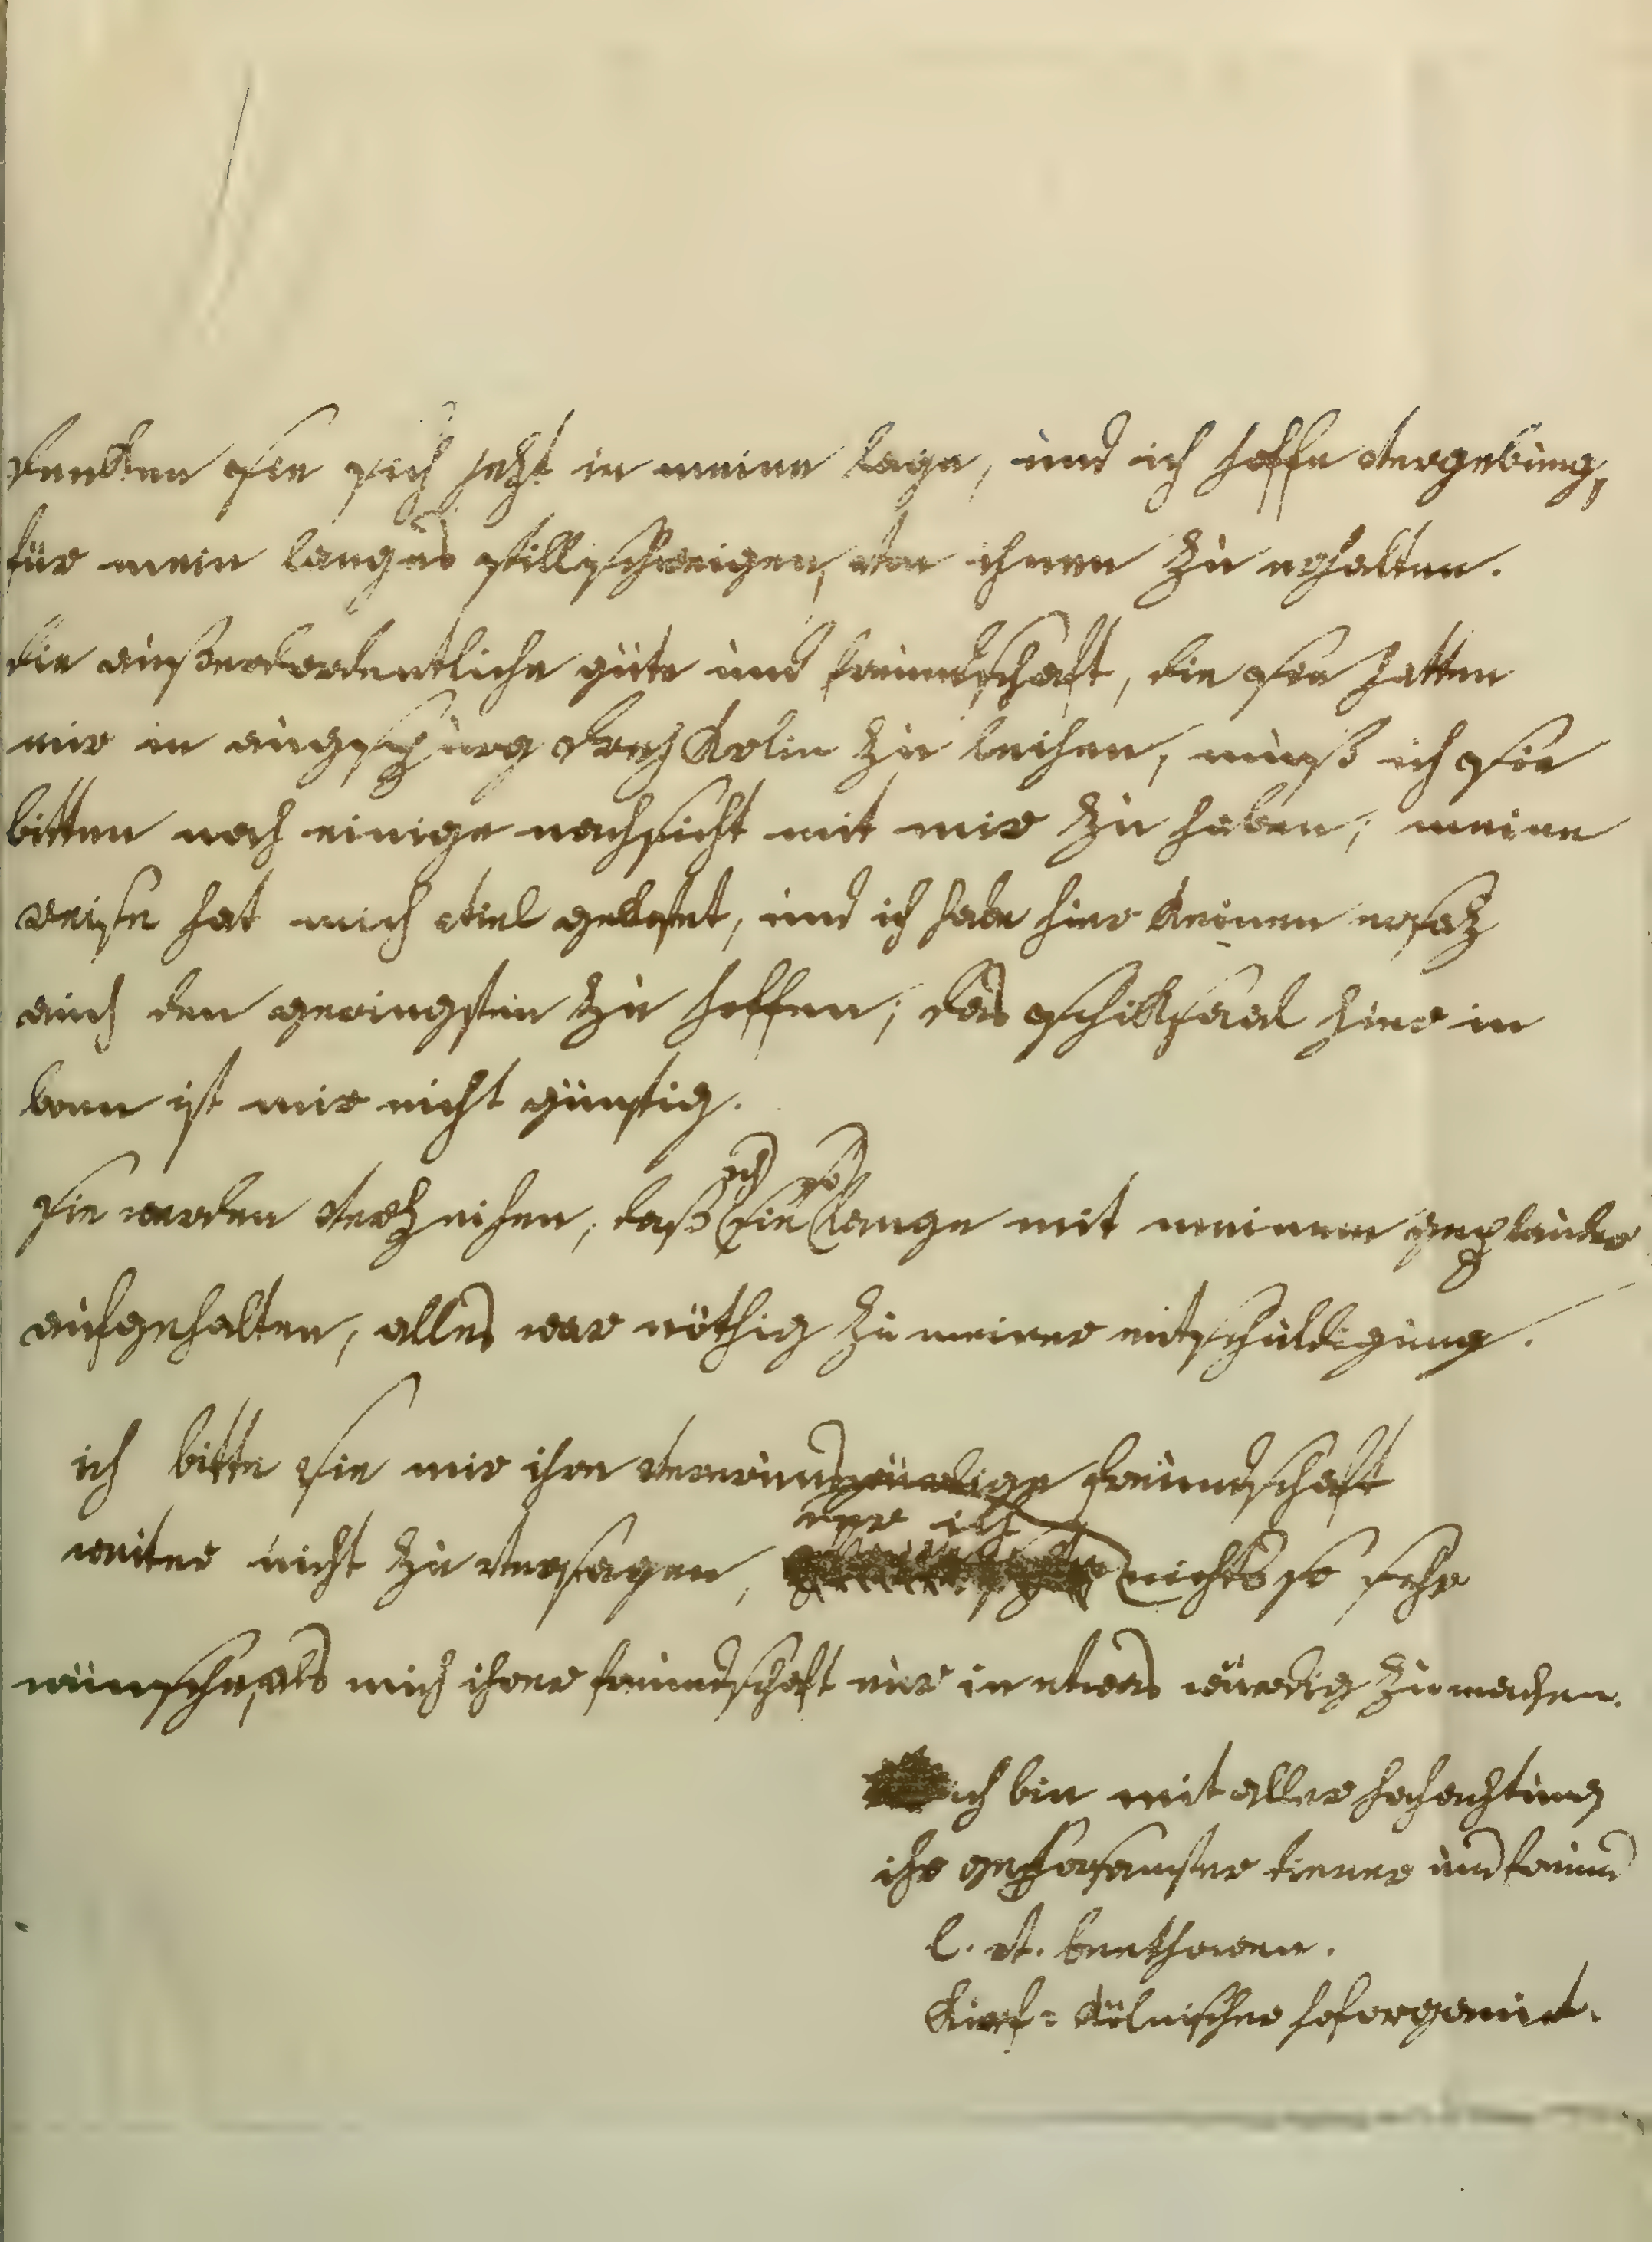 denken sie sich jezt in meine lage, und ich hoffe vergebung,
für mein langes stillschweigen, von ihnen zu erhalten.
die außerordentliche güte und freundschaft, die sie hatten
mir in augspurg drej Krlin zu leihen, muß ich sie
bitten noch einige nachsicht mit mir zu haben; meine
reise hat mich viel gekostet, und ich habe hier keinen ersaz
auch den geringsten zu hoffen; das schiksaal hier in
bonn ist mir nicht günstig.
ich so
sie werden verzeihen, daß sie lange mit meinem geplauder
aufgehalten, alles war nöthig zu meiner entschuldigung.
ich bitte sie mir ihre verehrungswürdige freundschaft
der ich
weiter nicht zu versagen, nichts so sehr
wünsche, als mich ihrer freundschaft nur in etwas würdig zu machen.
ich bin mit aller hochachtung
ihr gehorsamster diener und freund
l. v. beethowen.
kurf= kölnischer hoforganist.